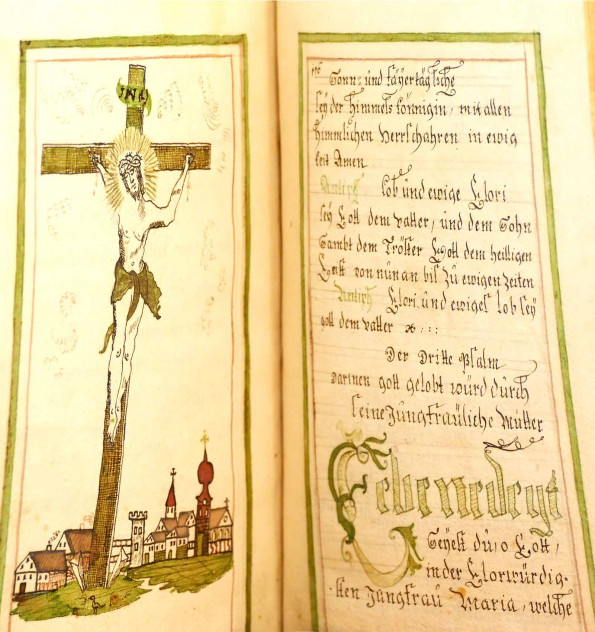 INRI
196
Sonn= und fäyertägliche
sey der himmels königin, mit allen
himmlichen Herrschahren in ewig
keit Amen
Antiph lob und ewige Glori
sey Gott dem vatter, und dem Sohn
Sambt dem Tröster Gott dem heilligen
Geist von nun an biß Zu ewigen Zeiten
Antiph Glori und ewiges lob sey
gott dem vatter
Der Dritte Psalm
Darinen gott gelobt würd durch
seine Jungfräuliche Mutter
Gebenedeyt
Seyest du, o Gott,
in der Glorwürdig=
sten Jungfrau Maria, welche